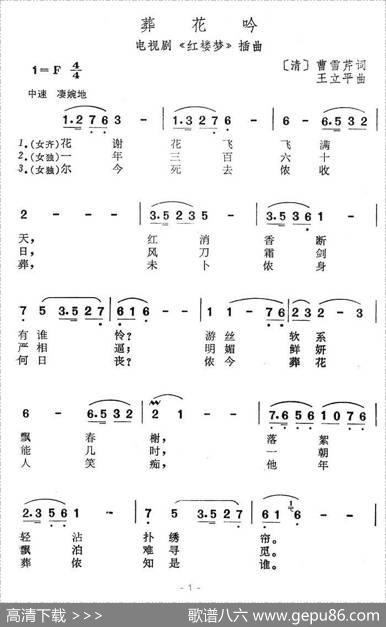 葬 花 吟
电视剧《红楼梦》插曲
1=F 4/4
〔清〕曹雪芹词
王立平曲
中速 凄婉地
1.276 3 - 1.327 6 - 6.532
1.(女齐)花 谢 花 飞 飞 满
2.(女独)一 年 三 百 六 十
3.(女独)尔 今 死 去 侬 收
2 - - - 3.5 235 - 3.5 361 -
天, 红 消 香 断
日, 风 刀 霜 剑
葬, 未 卜 侬 身
7 5 3.527 616 - - 1 1 - 76 23 2-3
有 谁 怜? 游 丝 软 系
严 相 逼; 明 媚 鲜 妍
何 日 丧? 侬 今 葬 花
6 - 6.532 2 1 - - 7.656 1076
飘 春 榭, 落 絮
能 几 时, 一 朝
人 笑 痴, 他 年
2.35 3.532 17 5 - 3.527 616 - -
轻 沾 扑 绣 帘。
飘 泊 难 寻 觅。
葬 侬 知 是 谁。
- 1 -
高清下载 >>>
歌谱八六 www.gepu86.com